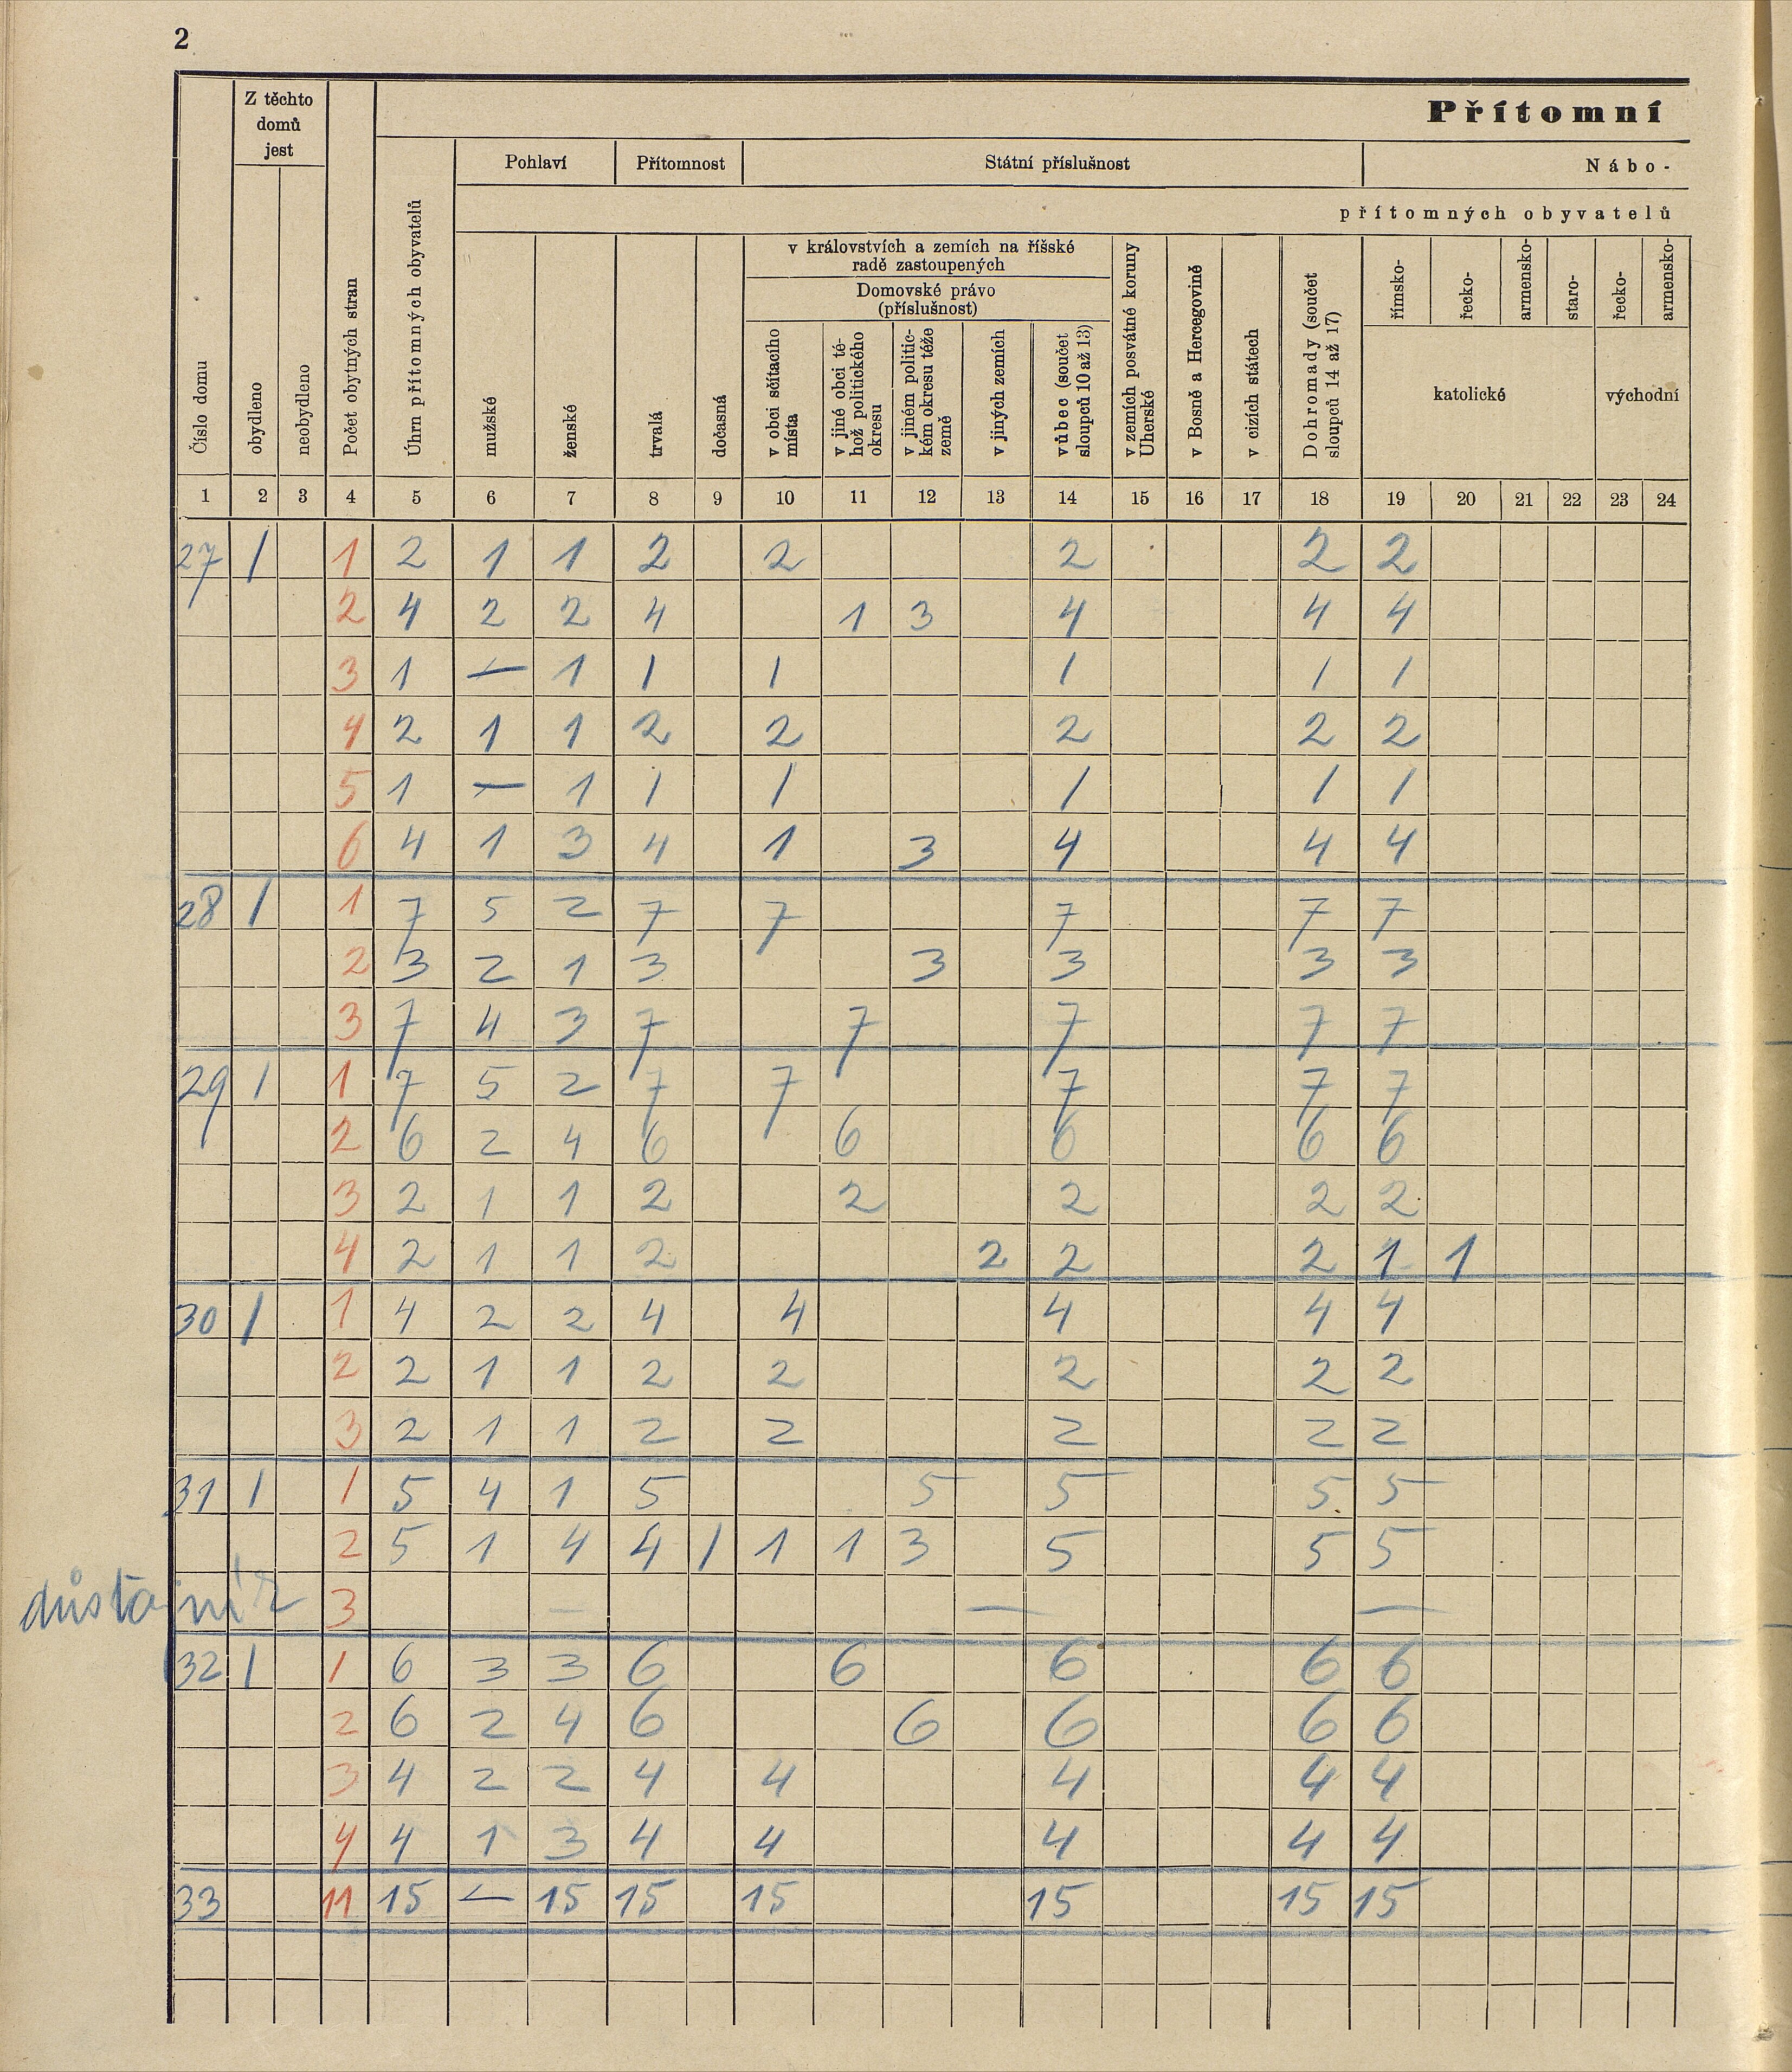 2
Přítomní
Z těchto
domů
jest
Pohlaví Přítomnost Státní příslušnost Nábo-
přítomných obyvatelů
Číslo domu
obydleno
neobydleno
Počet obytných stran
Úhrn přítomných obyvatelů
mužské
ženské
trvalá
dočasná
v královstvích a zemích na říšské
radě zastoupených
Domovské právo
(příslušnost)
v obci sčítacího
místa
v jiné obci té-
hož politického
okresu
v jiném politic-
kém okresu téže
země
v jiných zemích
vůbec (součet
sloupců 10 až 13)
v zemích posvátné koruny
Uherské
v Bosně a Hercegovině
v cizích státech
Dohromady (součet
sloupců 14 až 17)
římsko-
řecko-
armensko-
staro-
řecko-
armensko-
katolické
východní
1 2 3 4 5 6 7 8 9 10 11 12 13 14 15 16 17 18 19 20 21 22 23 24
27 1 1 2 1 1 2 2 2 2 2
2 4 2 2 4 1 3 4 4 4
3 1 — 1 1 1 1 1 1
4 2 1 1 2 2 2 2 2
5 1 — 1 1 1 1 1 1
6 4 1 3 4 1 3 4 4 4
28 1 1 7 5 2 7 7 7 7 7
2 3 2 1 3 3 3 3 3
3 7 4 3 7 7 7 7 7
29 1 1 7 5 2 7 7 7 7 7
2 6 2 4 6 6 6 6 6
3 2 1 1 2 2 2 2 2
4 2 1 1 2 2 2 2 1 1
30 1 1 4 2 2 4 4 4 4 4
2 2 1 1 2 2 2 2 2
3 2 1 1 2 2 2 2 2
31 1 1 5 4 1 5 5 5 5 5
2 5 1 4 4 1 1 1 3 5 5 5
3 — — —
32 1 1 6 3 3 6 6 6 6 6
2 6 2 4 6 6 6 6 6
3 4 2 2 4 4 4 4 4
4 4 1 3 4 4 4 4 4
33 11 15 — 15 15 15 15 15 15